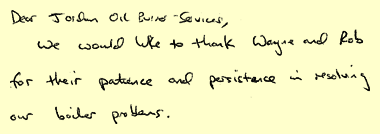 Dear Jordan Oil Burner Services,
We would like to thank Wayne and Rob
for their patience and persistence in resolving
our boiler problems.